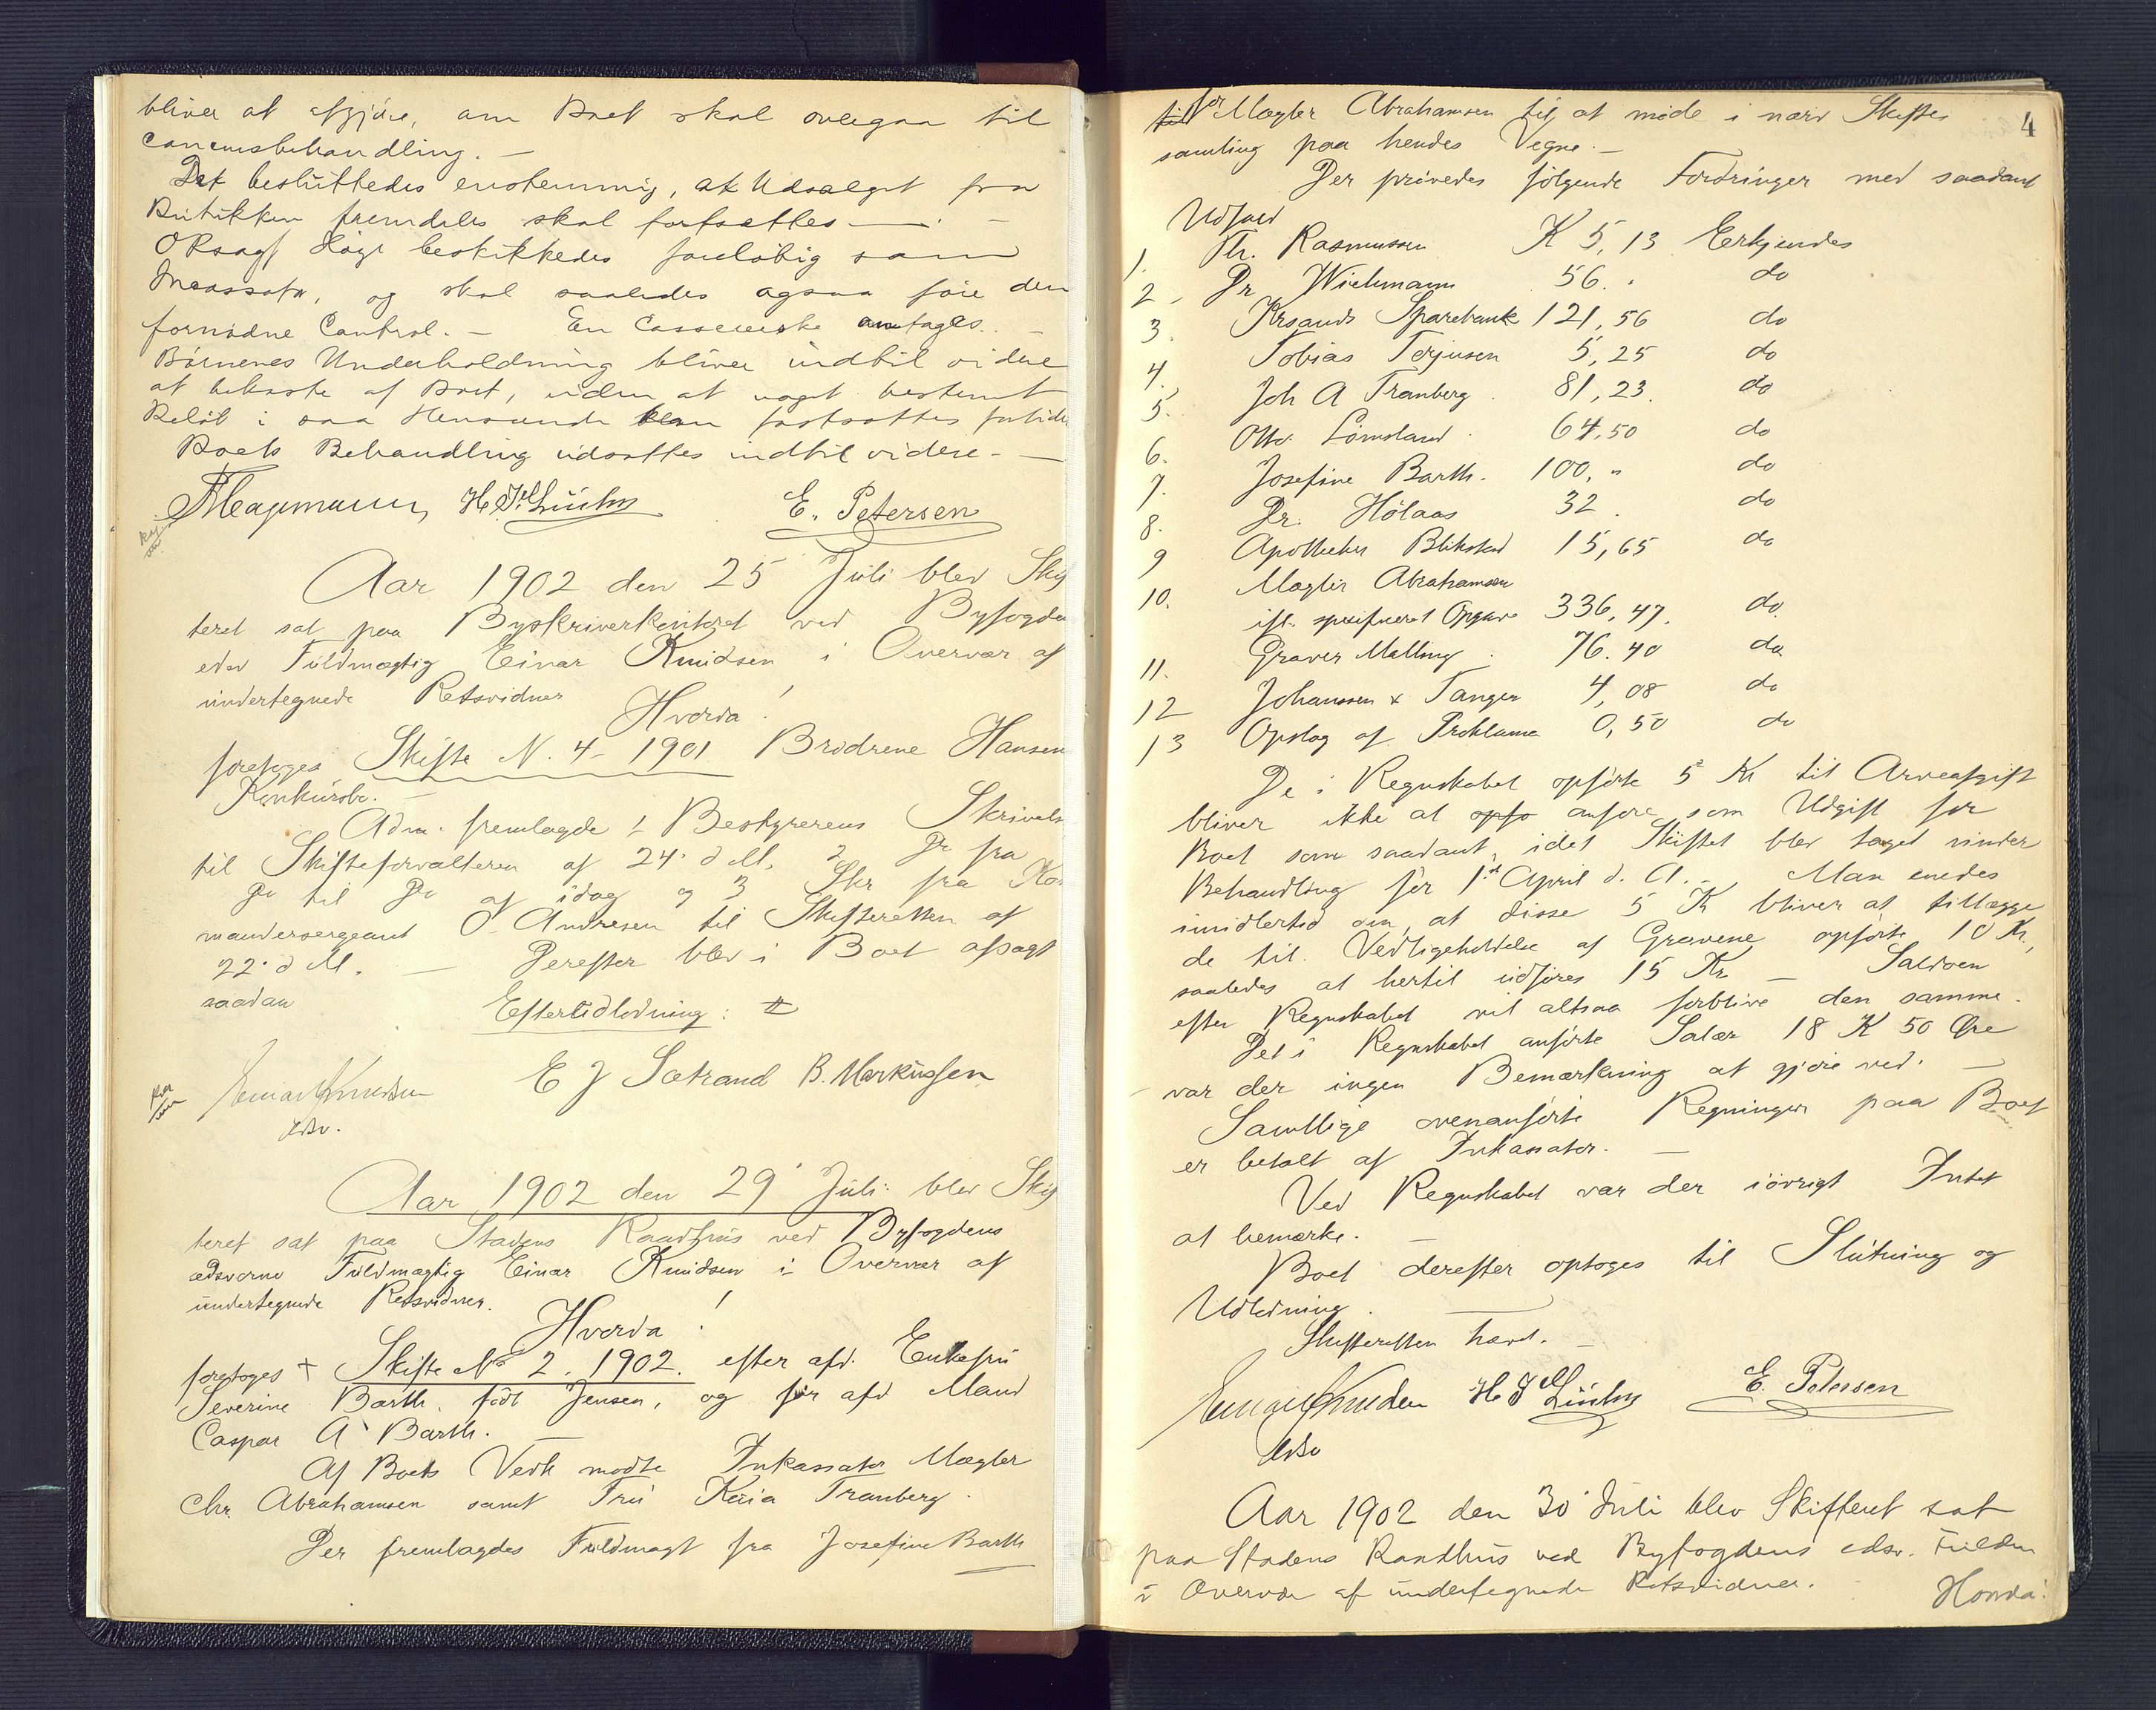 bliver at afgjøre, om Boet skal overgaa til
Concursbehandling. —
Det besluttedes enstemmig, at Udsalget fra
Butikken fremdeles skal fortsættes —
O Rsagf beskikkedes foreløbig som
Incassator, og skal saaledes ogsaa føie den
fornødne Control. — En Casserske antages. —
Børnenes Underholdning bliver indtil videre
at bekoste af Boet, uden at noget bestemt
Beløb i saa Henseende kan fastsættes
Boets Behandling udsættes indtil videre. —
Hagemann, H. J. E. Petersen
Aar 1902 den 25' Juli blev Skif
teret sat paa Byskriverkontoret ved Byfogdens
edsv Fuldmægtig Einar Knudsen i Overvær af
undertegnede Retsvidner
Hvorda!
foretoges Skifte N. 4 - 1901 Brødrene Hansen
Konkursbo. —
Adm. fremlagde 1 Bestyrerens Skrivelse
til Skifteforvalteren af 24' d M. 2 Do fra
Do til Do af idag og 3 Skr fra Kom
mandersergeant O. Andresen til Skifteretten af
22' d M. — Derefter blev i Boet afsagt
saadan Efterudlodning: #
Einar Knudsen E J Sætrand B. Markussen
edsv.
Aar 1902 den 29' Juli blev Skif
teret sat paa Stadens Raadhus ved Byfogdens
edsvorne Fuldmægtig Einar Knudsen i Overvær af
undertegnede Retsvidner.
Hvorda!
foretoges + Skifte No 2. 1902. efter afd. Enkefru
Severine Barth, født Jensen, og før afd Mand
Caspar A. Barth. —
Af Boets Vedk mødte Inkassator Mægler
Chr. Abrahamsen samt Fru Kaia Tranberg.
Der fremlagdes Fuldmagt fra Josefine Barth
4
til for Mægler Abrahamsen til at møde i nærv Skifte
samling paa hendes Vegne. —
Der prøvedes følgende Fordringer med saadant
Udfald
1. Th. Rasmussen K 5,13 Erkjendes
2 - Dr Wichmann 56. " do
3. Krsands Sparebank 121,56 do
4. Tobias Terjusen 5,25 do
5. Joh A Tranberg 81,23. do
6. Otto Lømsland 64,50 do
7. Josefine Barth. 100, " do
8. Dr. Hølaas 32 . do
9 Apotheker Blikstad 15,65 do
10. Mægler Abrahamsen
ifl. spesifiseret Opgave 336,47. do.
11. Graver Malling 76.40 do.
12 Johanssen & Tangen 4,08 do
13 Opslag af Proklama 0,50 do
De i Regnskabet opførte 5 Kr til Arveafgift
bliver ikke at opfø anføre som Udgift for
Boet som saadant, idet Skiftet blev taget under
Behandling før 1st April d. A. — Man enedes
imidlertid om, at disse 5 K bliver at tillægge
de til Vedligeholdelse af Gravene opførte 10 Kr,
saaledes at hertil udføres 15 Kr — Saldoen
efter Regnskabet vil altsaa forblive den samme.
Det i Regnskabet anførte Salær 18 K 50 Øre
var der ingen Bemærkning at gjøre ved. —
Samtlige ovenanførte Regninger paa Boet
er betalt af Inkassator. —
Ved Regnskabet var der iøvrigt Intet
at bemærke. —
Boet derefter optoges til Slutning og
Udlodning.
Skifteretten hævet. —
Einar Knudsen H J E. Petersen
edsv
Aar 1902 den 30' Juli blev Skifteret sat
paa Stadens Raadhus ved Byfogdens edsv. Fuldm
i Overvær af undertegnede Retsvidner. Hvorda!